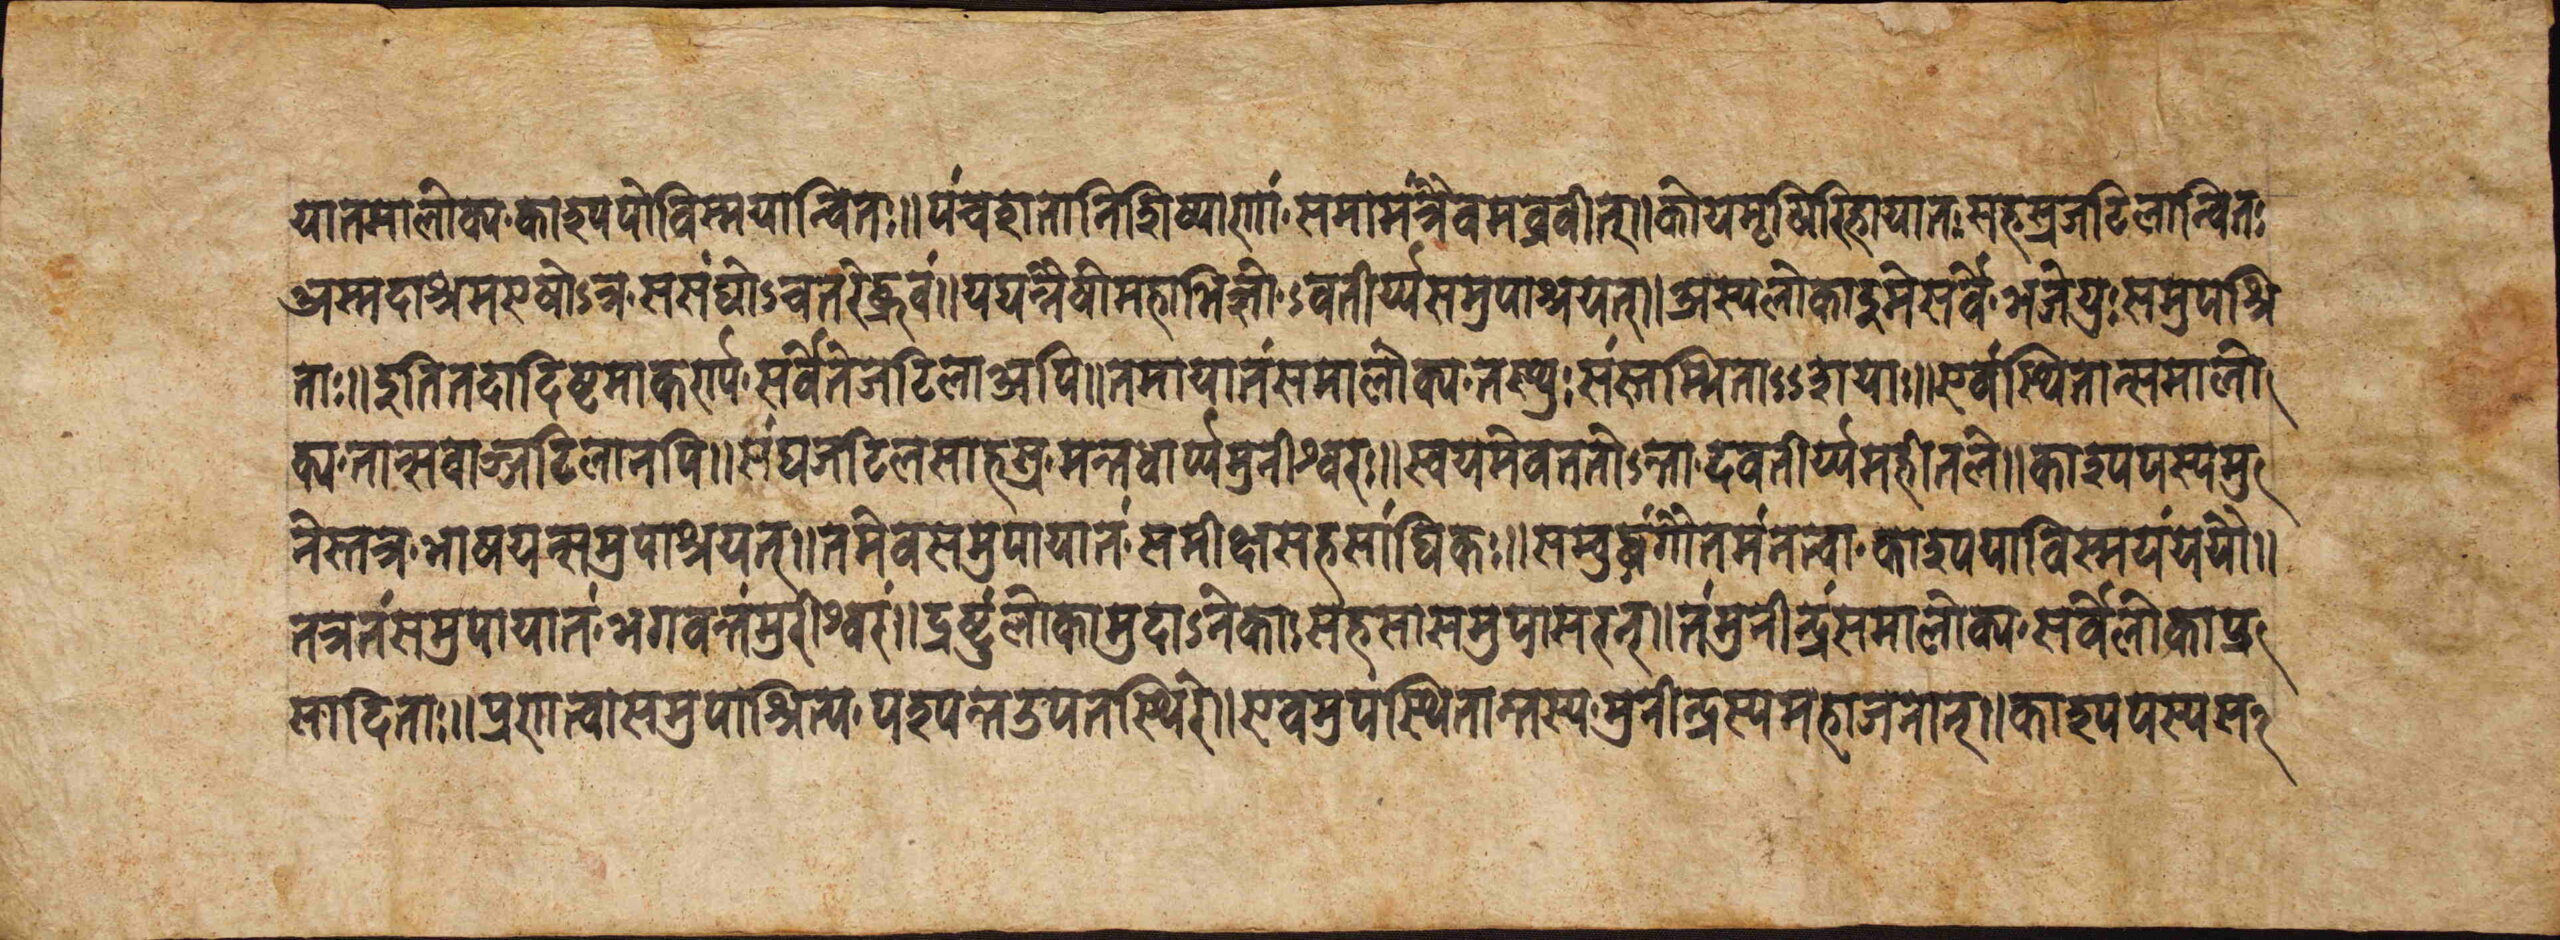 यातमालोक्य॰काश्यपोविस्मयान्वितः॥पंचशतानिशिष्याणां॰समामंत्रैवमव्रवीत्॥कोयमृषिरिहायातः॰सहस्रजटिलान्वितः
अस्मदाश्रमएषोऽत्र॰ससंघोऽवतरेद्ध्रुवं॥यद्यत्रैषोमहाभिज्ञो॰ऽवतीर्य्यसमुपाश्रयत्॥अस्यलोकाइमेसर्वे॰भजेयुःसमुपाश्रि
ताः॥इतितदादिष्टमाकर्ण्य॰सर्वेतेजटिलाअपि॥तमायातंसमालोक्य॰तस्थुःसंस्तम्भिताऽऽशयाः॥एवंस्थितान्समालो
क्य॰तान्सर्वाञ्जटिलानपि॥संघजटिलसाहस्र॰मन्तर्धार्य्यमुनीश्वरः॥स्वयमेवततोऽन्ता॰दवतीर्य्यमहीतले॥काश्यपस्यमु
नेस्तत्र॰भाषयन्समुपाश्रयत्॥तमेवसमुपायातं॰समीक्ष्यसहसांघिकः॥सम्वुद्धंगौतमंनत्वा॰काश्यपोविस्मयंययौ॥
तत्रतंसमुपायातं॰भगवन्तंमुनीश्वरं॥द्रष्टुंलोकामुदाऽनेकाःसहसासमुपासरन्॥तंमुनीन्द्रंसमालोक्य॰सर्वेलोकाप्र
सादिताः॥प्रणत्वासमुपाश्रित्य॰पश्यन्तउपतस्थिरे॥एवमुपस्थितान्तस्य॰मुनीन्द्रस्यमहाजनान्॥काश्यपस्यस